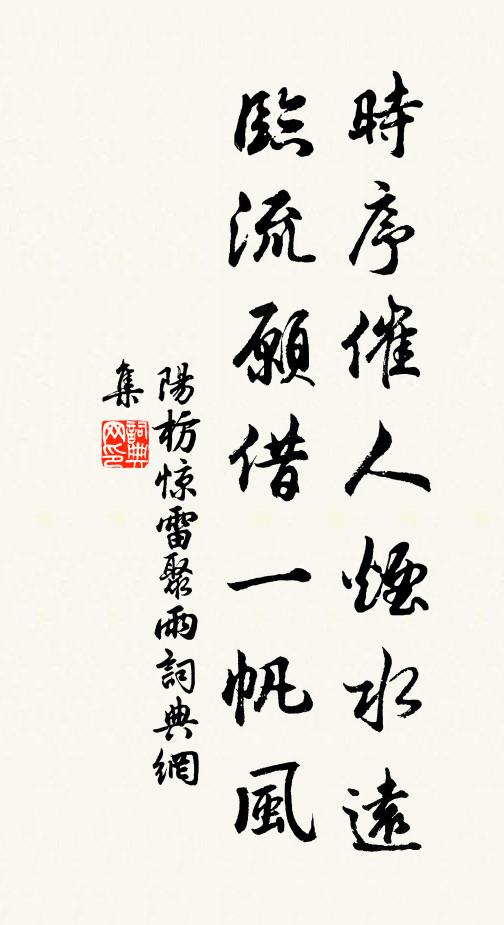 時序催人煙水遠
臨流願借一帆風
陽枋惊雷聚雨詞典網
集
詞典網印